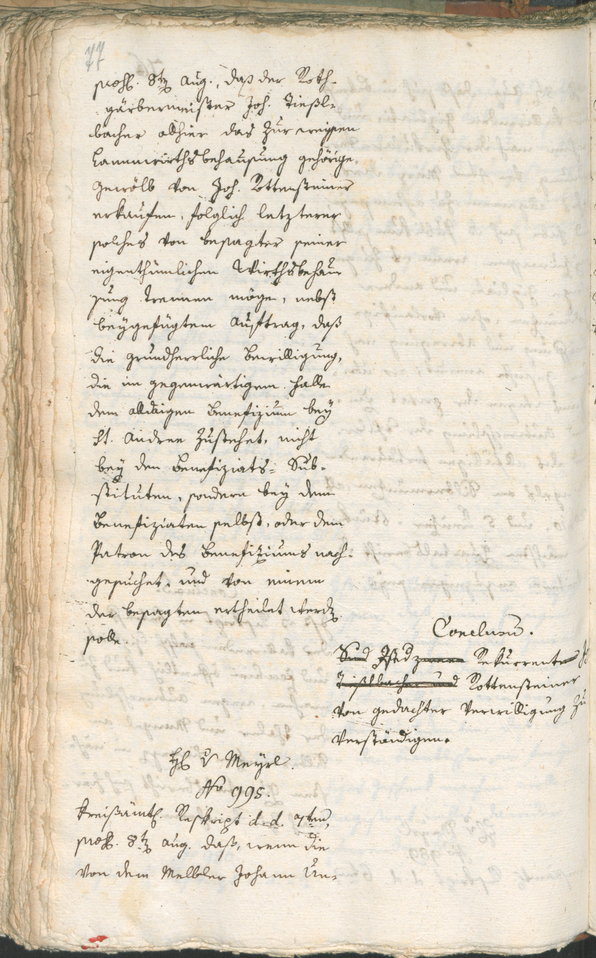 77
præs. 8tz Aug., daß der Roth-
gärbermeister Joh. Tießl-
bacher alhier das zur weißen
Lammwürthsbehausung gehörige
Gewölb von Joh. Rottensteiner
erkaufen, folglich letzterer
solches von besagter seiner
eigenthümlichen Würthsbehau-
sung trennen möge, nebst
beygefügtem Auftrag, daß
die grundherrliche Bewilligung,
die im gegenwärtigem Falle
dem alldaigen Benefizium bey
St. Andree zustehet, nicht
bey dem Benefiziats-Sub-
stituten, sondern bey dem
Benefiziaten selbst, oder dem
Patron des Benefiziums nach-
gesuchet, und von einem
der besagten ertheilet werdz
solle.
Conclusum.
Sind Rekurrente
Tießlbacher und Rottensteiner
von gedachter Verwilligung zu
verständigen.
H v Meyrl.
No 995.
Kreißämtl. Reskript d. d. 7ten,
præs. 8tz Aug. daß, wenn die
von dem Melbler Johann Un-